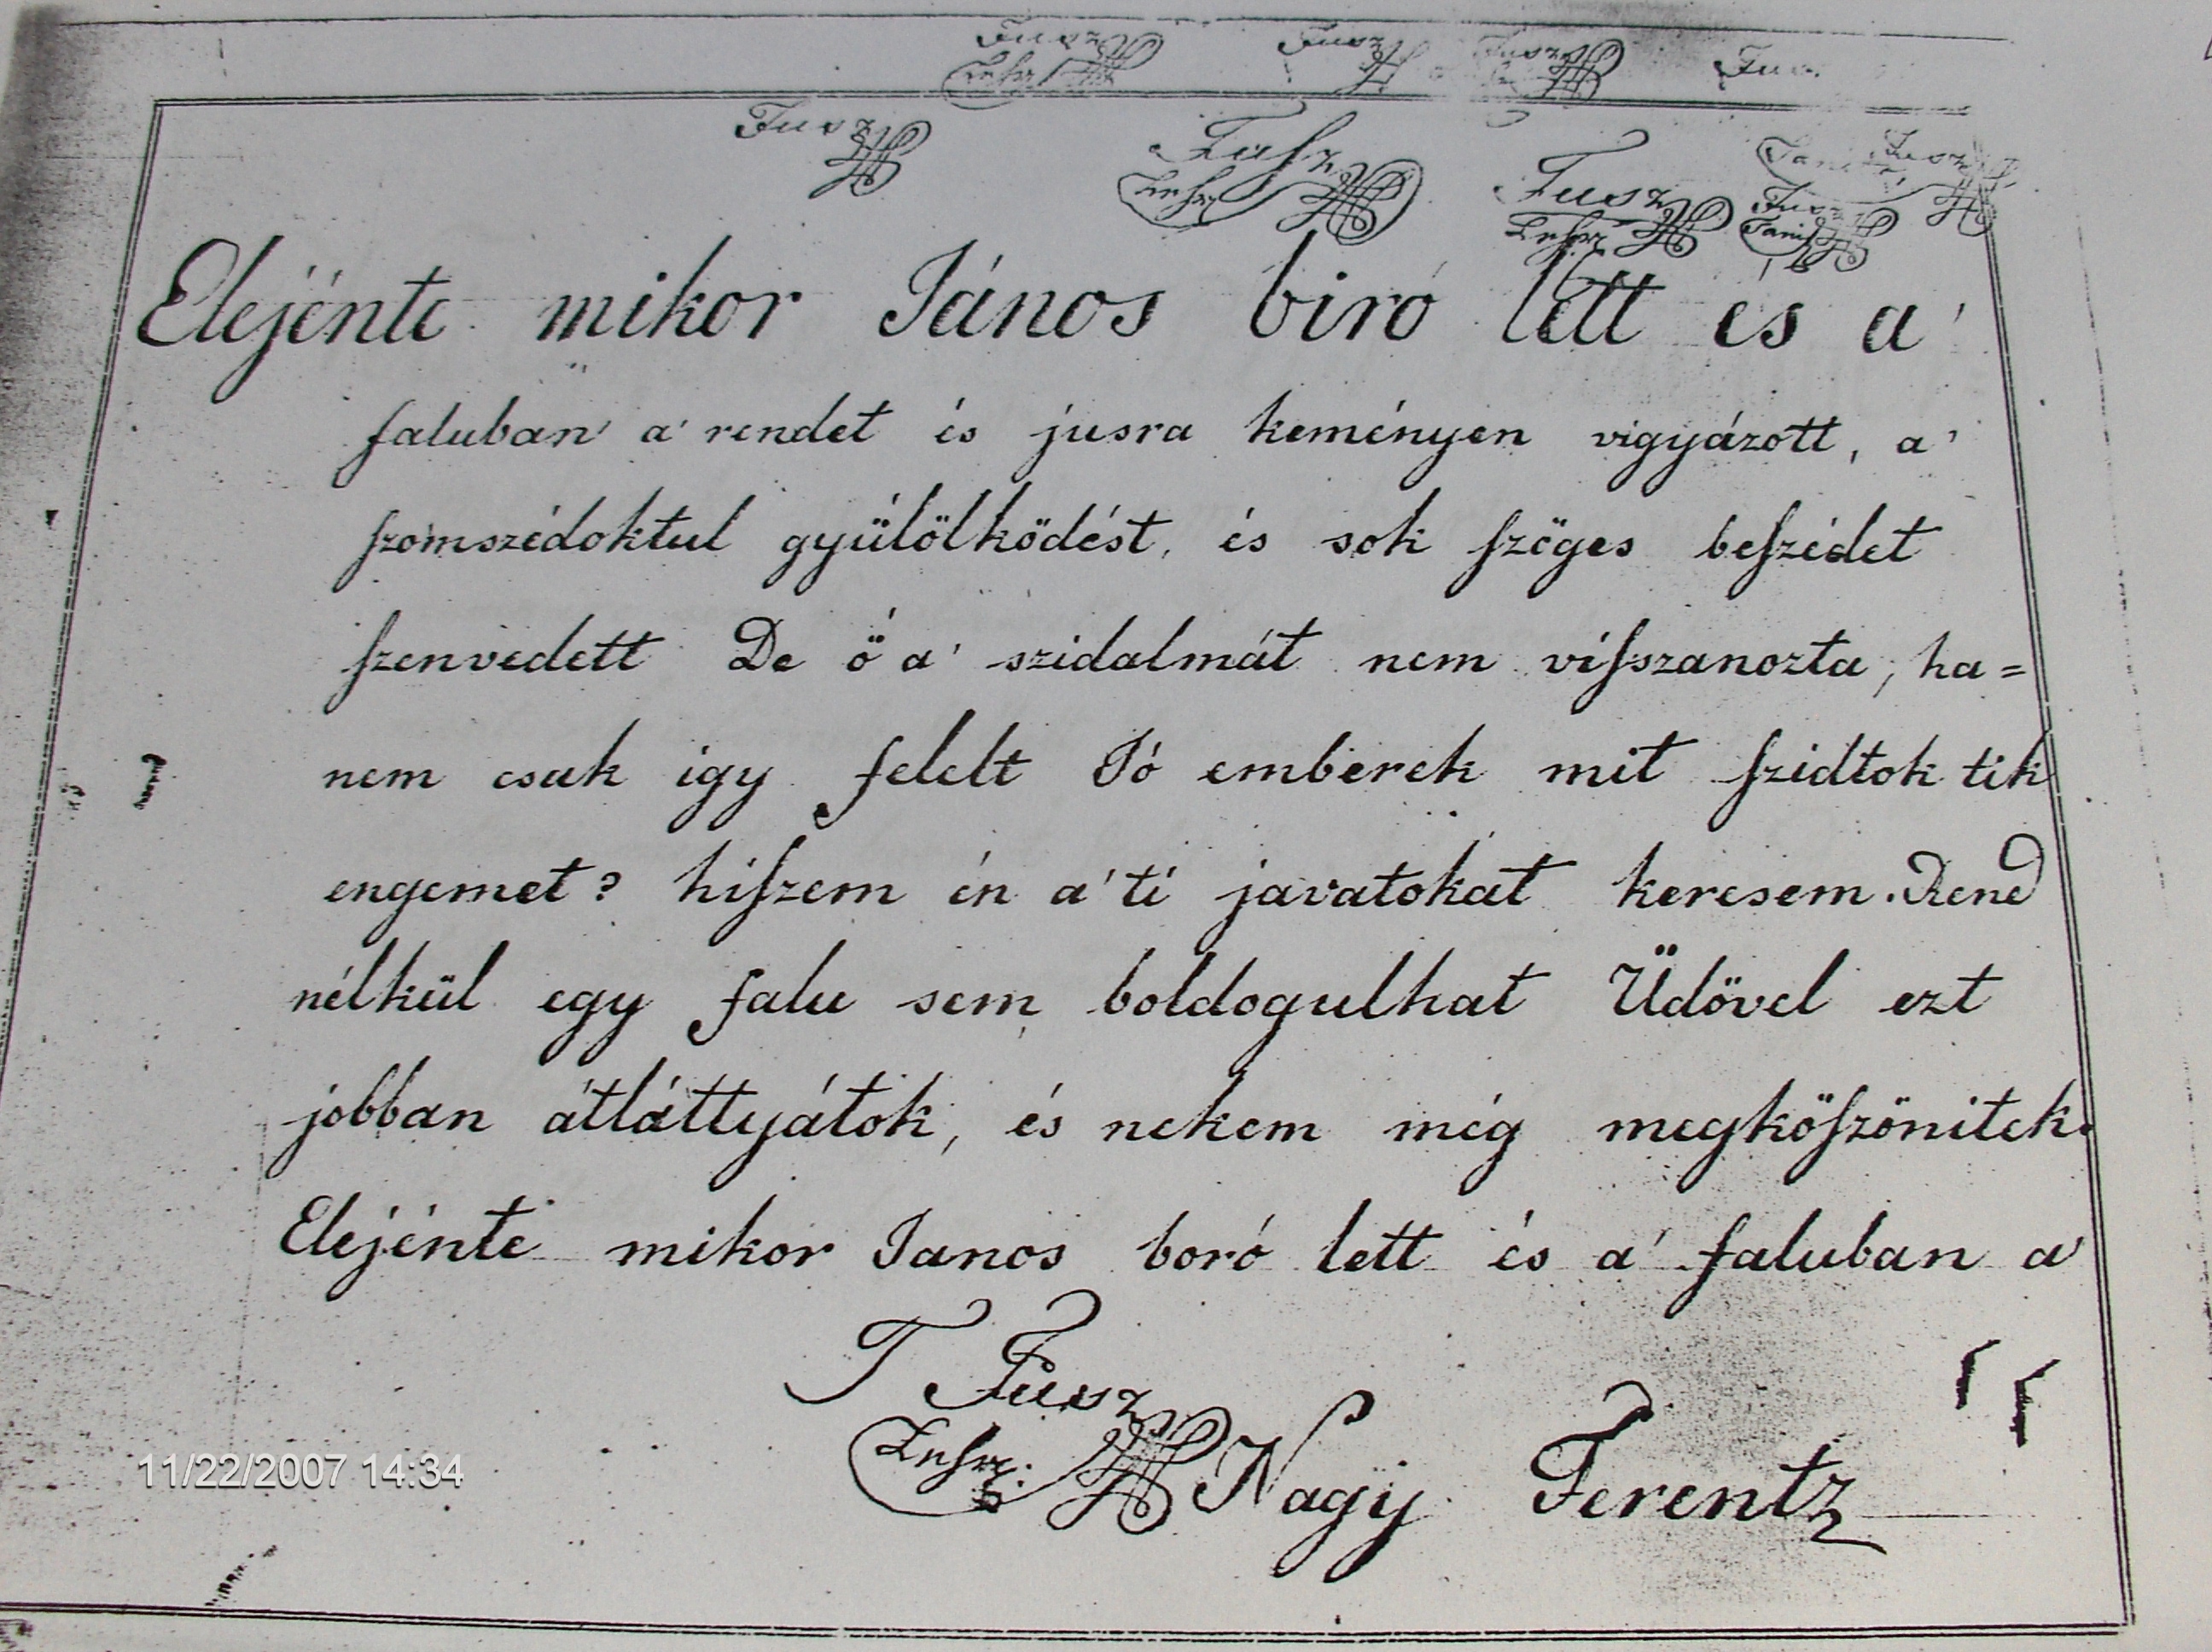 Fusz
Fuszr
Fusz
Fusz
Lehr
Fusz
Lehr
Elejénte mikor János biró lett és a'
faluban a' rendet és jusra keményen vigyázott, a'
ſzomszédoktul gyülölködést, és sok ſzöges beſzédet
ſzenvedett De ő a' szidalmát nem viſszanozta, ha=
nem csak igy felelt Jó emberek mit ſzidtok tik
engemet? hiſzem én a' ti javatokat keresem. Rend
nélkül egy falu sem boldogulhat Üdövel ezt
jobban átláttyátok, és nekem még megköſzönitek.
Elejénte mikor Janos boró lett és a' faluban a'
T Fusz
Lehr:
Nagy Ferentz
11/22/2007 14:34